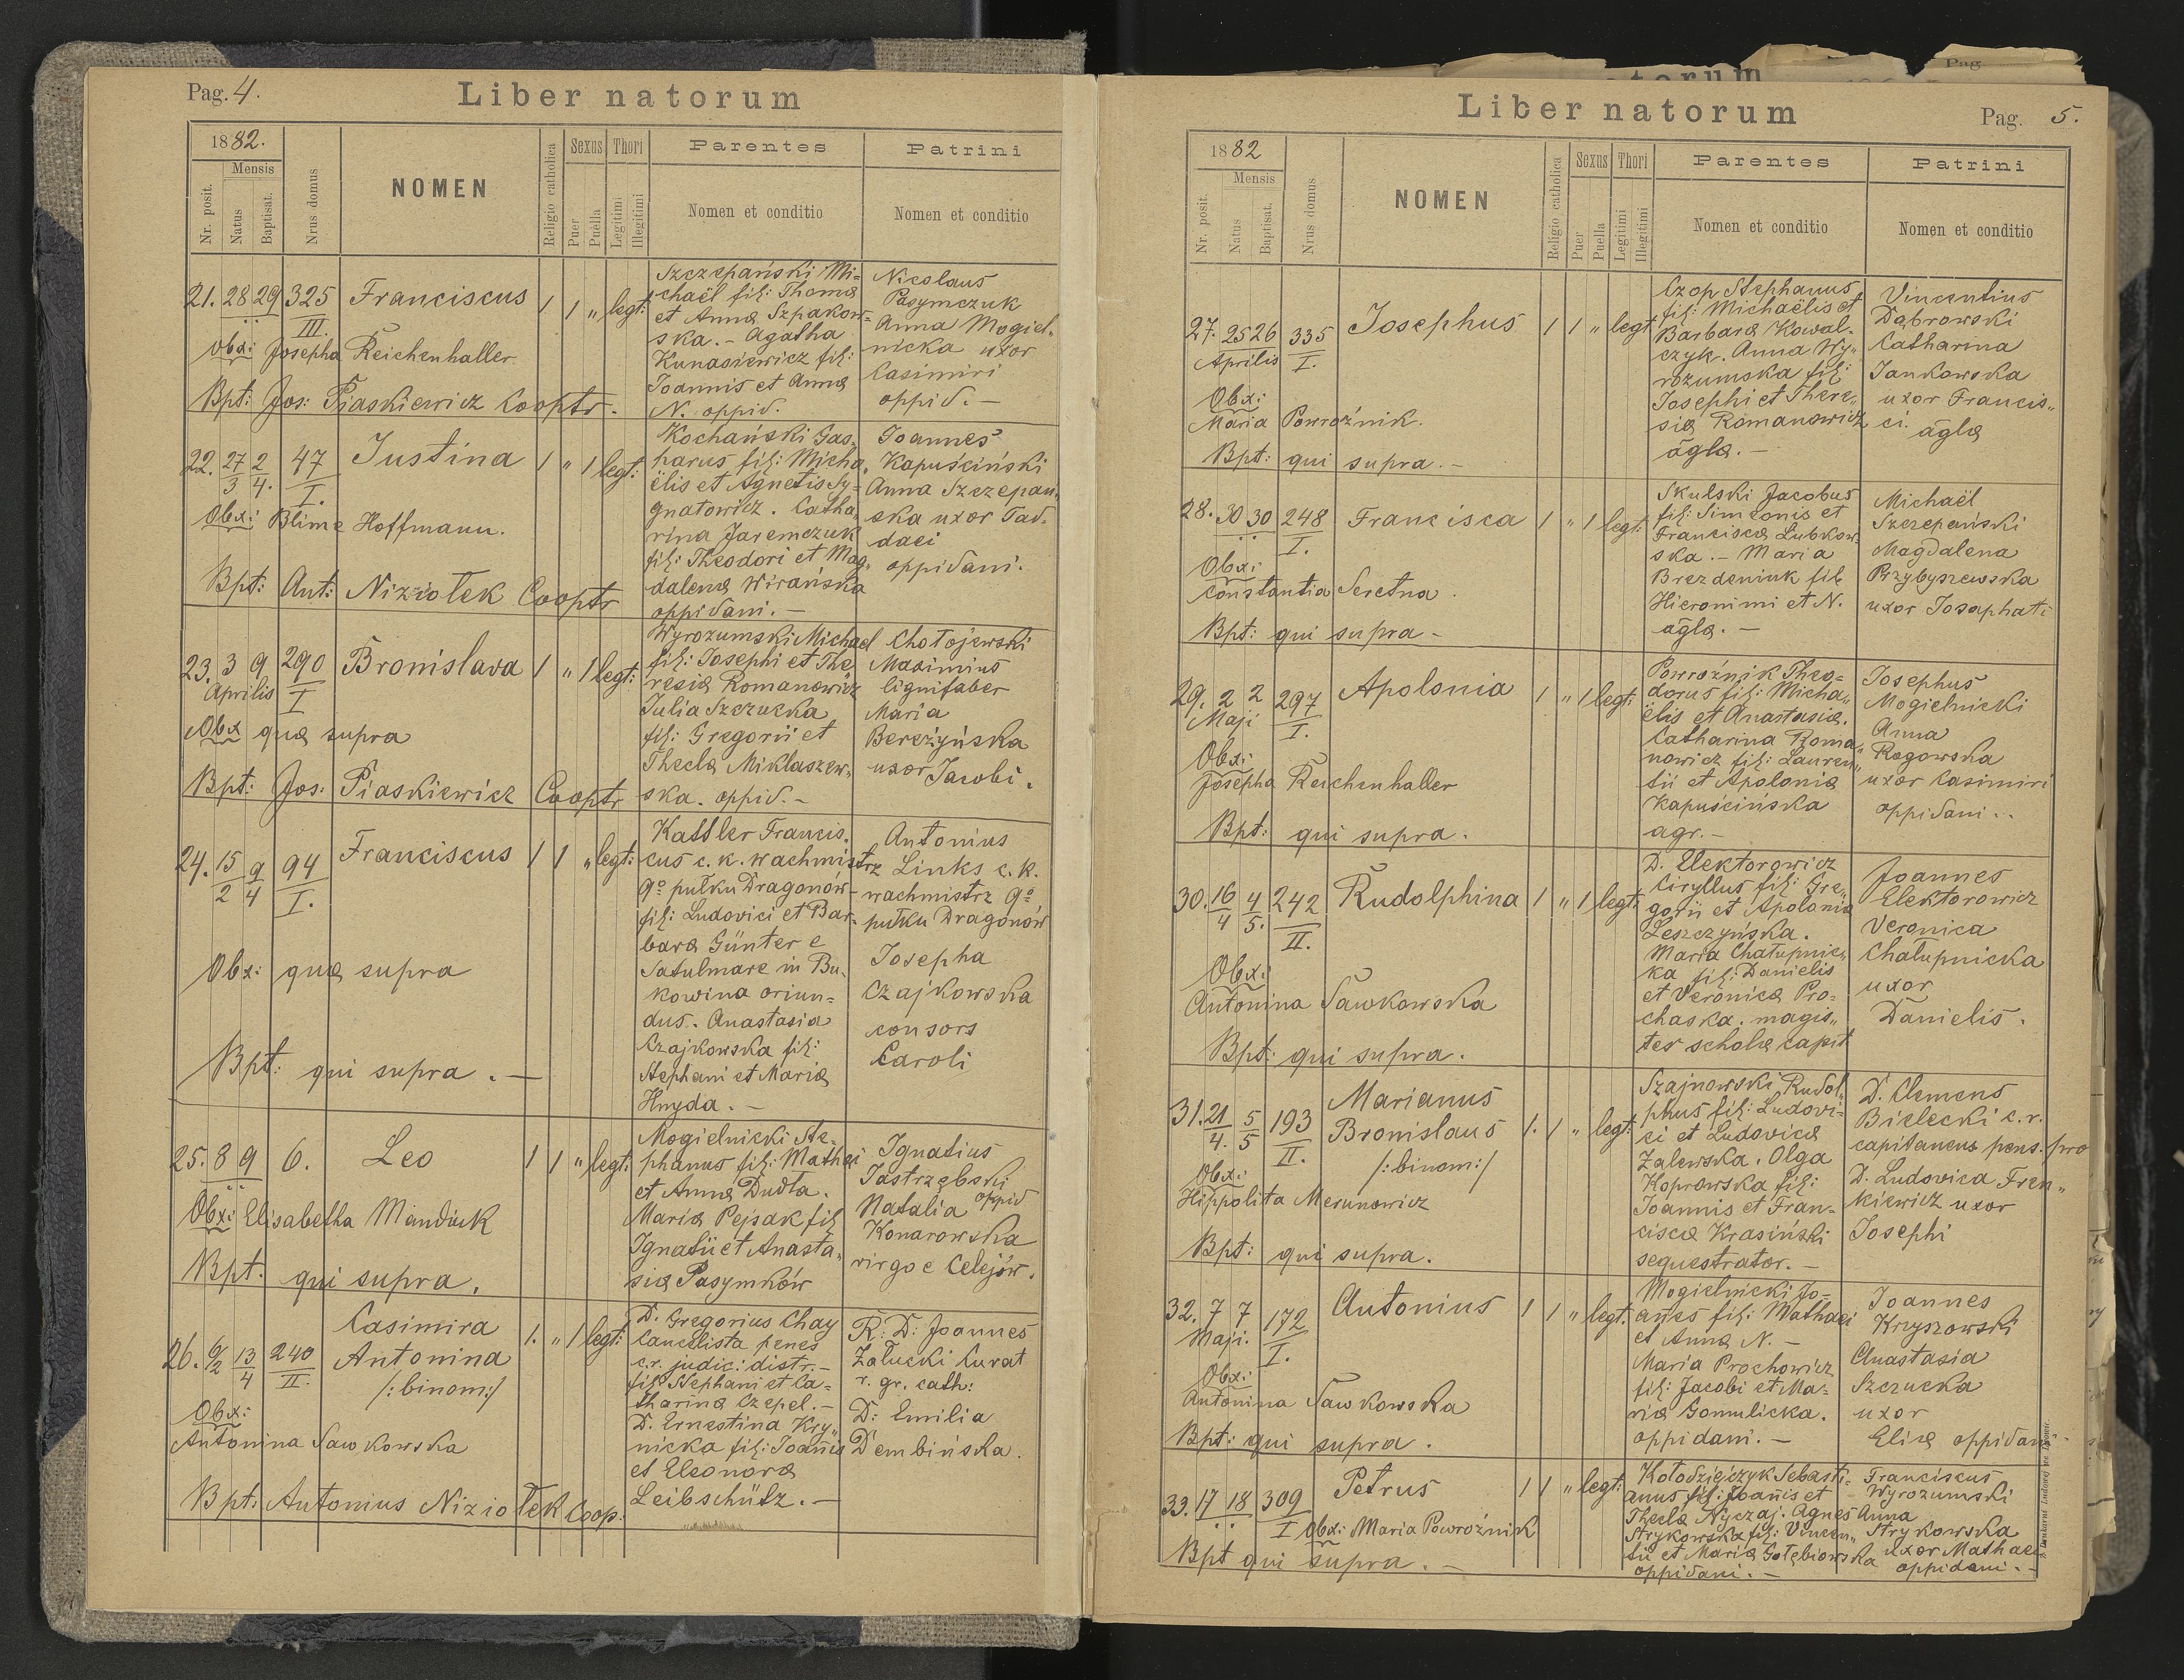 Pag. 4.
Liber natorum
1882.
Mensis
Nr. posit.
Natus
Baptisat.
Nrus domus
NOMEN
Religio catholica
Sexus
Puer
Puella
Thori
Legitimi
Illegitimi
Parentes
Nomen et conditio
Patrini
Nomen et conditio
21. 28 29 325 III. Franciscus 1 1 " legt:
Obx: Josepha Reichenhaller
Bpt: Jos: Piaskiewicz Cooptr.
Szczepański Mi=
chaël fil: Thomæ
et Annæ Szpakow=
ska. - Agatha
Kunasiewicz fil:
Joannis et Annæ
N. oppid.
Nicolaus
Pasymczuk
Anna Mogiel-
nicka uxor
Casimiri
oppid. -
22. 27/3 2/4. 47 I. Justina 1 " 1 legt:
Obx: Blime Hoffmann.
Bpt: Ant: Niziołek Cooptr
Kochański Gas-
parus fil: Micha
ëlis et Agnetis Sy=
gnatowicz. Catha,
rina Jaremczuk
fil: Theodori et Mag,
dalenæ Wirańska
oppidani. -
Joannes
Kapuściński
Anna Szczepań-
ska uxor Tad.
daei
oppidani.
23. 3 9 Aprilis 290 I Bronislava 1 " 1 legt:
Obx quæ supra
Bpt: Jos: Piaskiewicz Cooptr
Wyrozumski Michael
fil: Josephi et The
resiæ Romanowicz
Julia Szczucka
fil: Gregorii et
Theclæ Miklaszew-
ska. oppid. -
Chołojewski
Maximius
lignifaber
Maria
Bereżyńska
uxor Jacobi.
24. 15/2 9/4 94 I. Franciscus 1 1 " legt:
Obx: quæ supra
Bpt: qui supra. -
Kattler Francis.
cus c. k. wachmistrz
9º pułku Dragonów -
fil: Ludovici et Bar-
baræ Günter e
Satulmare in Bu-
kowina oriun=
dus. Anastasia
Czajkowska fil:
Stephani et Mariæ
Hnyda. -
Antonius
Links c. k.
wachmistrz 9º
pułku Dragonów
Josepha
Czajkowska
consors
Caroli
25. 8 9 6. Leo 1 1 " legt:
Obx: Elisabetha Mandiuk
Bpt. qui supra.
Mogielnicki Ste-
phanus fil: Mathæi
et Annæ Dudła.
Maria Pejsak fil
Ignatii et Anasta,
siæ Pasymków
Ignatius
Jastrzębski
oppid
Natalia
Konarowska
virgo e Celejów.
26. 6/2 13/4 240 II. Casimira
Antonina
/:binom:/
1. " 1 legt:
Obx:
Antonina Sawkowska
Bpt: Antonius Niziołek Coop:
D. Gregorius Chay
Cancelista penes
c.r. judic: distr. -
fil Stephani et Ca=
tharinæ Czepel. -
D. Ernestina Kry,
nicka fil: Joannis
et Eleonoræ
Leibschütz. -
R: D: Joannes
Załucki Curat
r. gr. cath:
D: Emilia
Dembińska.
Liber natorum
Pag. 5.
1882
Mensis
Nr. posit.
Natus
Baptisat.
Nrus domus
NOMEN
Religio catholica
Sexus
Puer
Puella
Thori
Legitimi
Illegitimi
Parentes
Nomen et conditio
Patrini
Nomen et conditio
27. 25 26 Aprilis 335 I. Josephus 1 1 " legt
Obx:
Maria Powroźnik.
Bpt: qui supra. -
Czop Stephanus
fil: Michaëlis et
Barbaræ Kowal-
czyk. Anna Wy,
rozumska fil:
Josephi et There,
siæ Romanowicz
ãglæ. -
Vincentius
Dąbrowski
Catharina
Jankowska
uxor Francis,,
ci. ãglæ
28. 30 30 248 I. Francisca 1 " 1 legt:
Obx:
Constantia Seretna.
Bpt: qui supra -
Skulski Jacobus
fil: Simeonis et
Franciscæ Lubkow-
ska. - Maria
Brezdeniuk fil
Hieronimi et N.
ãglæ. -
Michaël
Szczepański
Magdalena
Przybyszewska
uxor Josaphati
29. 2 2 Maji 297 I. Apolonia 1 " 1 legt:
Obx:
Josepha Reichenhaller
Bpt: qui supra.
Powroźnik Theo-
dorus fil: Micha,,
ëlis et Anastasiæ.
Catharina Roma,,
nowicz fil: Lauren,,
tii et Apoloniæ
Kapuścińska
agr. -
Josephus
Mogielnicki
Anna
Rogowska
uxor Casimiri
oppidani..
30. 16/4 4/5. 242 II. Rudolphina 1 " 1 legt:
Obx:
Antonina Sawkowska
Bpt: qui supra.
D. Elektorowicz
Ciryllus fil: Gre,
gorii et Apoloniæ
Leszczyńska.
Maria Chałupnic,
ka fil: Danielis
et Veronicæ Pro=
chaska. magis,,
ter scholæ capit
Joannes
Elektorowicz
Veronica
Chalupnicka
uxor
Danielis.
31. 21/4. 5/5 193 II. Marianus
Bronislaus
/:binom:/
1. 1 " legt:
Obx:
Hippolita Merunowicz
Bpt: qui supra.
Szajnowski Rudol,
phus fil: Ludovi=
ci et Ludovicæ
Zalewska. Olga
Koprowska fil:
Joannis et Fran-
ciscæ Krasiński
sequestrator. -
D. Clemens
Bielecki c. r.
capitaneus pens. pro
D. Ludovica Fren,,
kiewicz uxor
Josephi
32. 7 7 Maji. 172 I. Antonius 1 1 " legt:
Obx:
Antonina Sawkowska
Bpt: qui supra.
Mogielnicki Jo-
añes fil: Mathæi
et Annæ N. -
Maria Prochowicz
fil: Jacobi et Ma=
riæ Gomulicka.
oppidani. -
Joannes
Kryszowski
Anastasia
Szczucka
uxor
Eliæ oppidani
33. 17 18 309 I Petrus 1 1 " legt:
Obx: Maria Powroźnik
Bpt qui supra. -
Kołodziejczyk Sebasti-
anus fil: Joañis et
Theclæ Nyczaj. Agnes
Strykowska fil: Vincen,,
tii et Mariæ Gołębiowska
oppidani. -
Franciscus
Wyrozumski
Anna
Strykowska
uxor Mathaei
oppidani. -